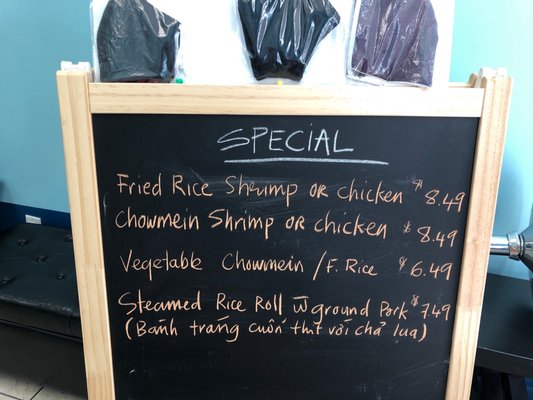 SPECIAL
Fried Rice Shrimp OR chicken $8.49
Chowmein Shrimp OR chicken $8.49
Vegetable Chowmein / F. Rice $6.49
Steamed Rice Roll w̄ ground Pork $7.49
(Bánh tráng cuốn thịt với chả lụa)